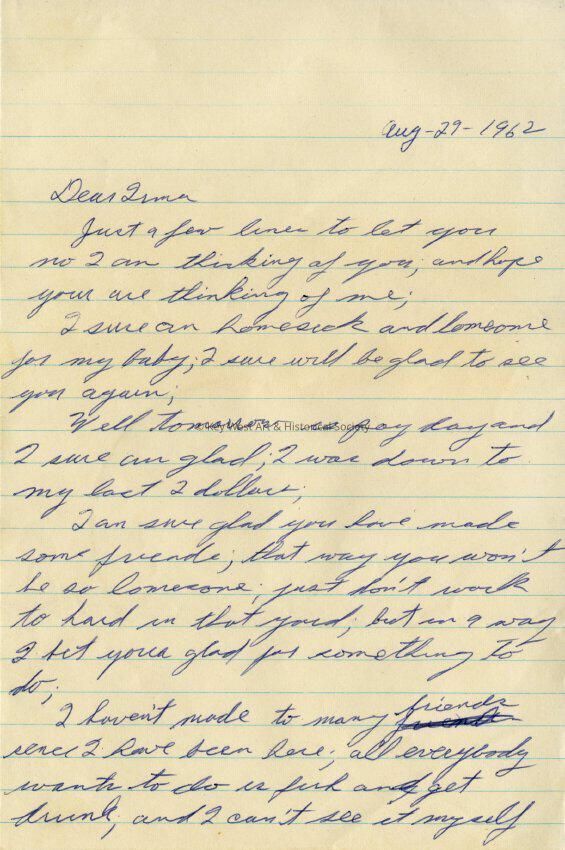 Aug-29-1962
Dear Irma
Just a few lines to let you
no I am thinking of you; and hope
your are thinking of me;
I sure am homesick and lonesome
for my baby; I sure will be glad to see
you again;
Well tomorrow is pay day and
© Key West Art & Historical Society
I sure am glad; I was down to
my last 2 dollars;
I am sure glad you have made
some friends; that way you won't
be so lonesome; just don't work
to hard in that yard; but in a way
I bet your glad for something to
do;
I haven't made to many friends
sence I have been here; all everybody
wants to do is fish and get
drunk; and I can't see it myself